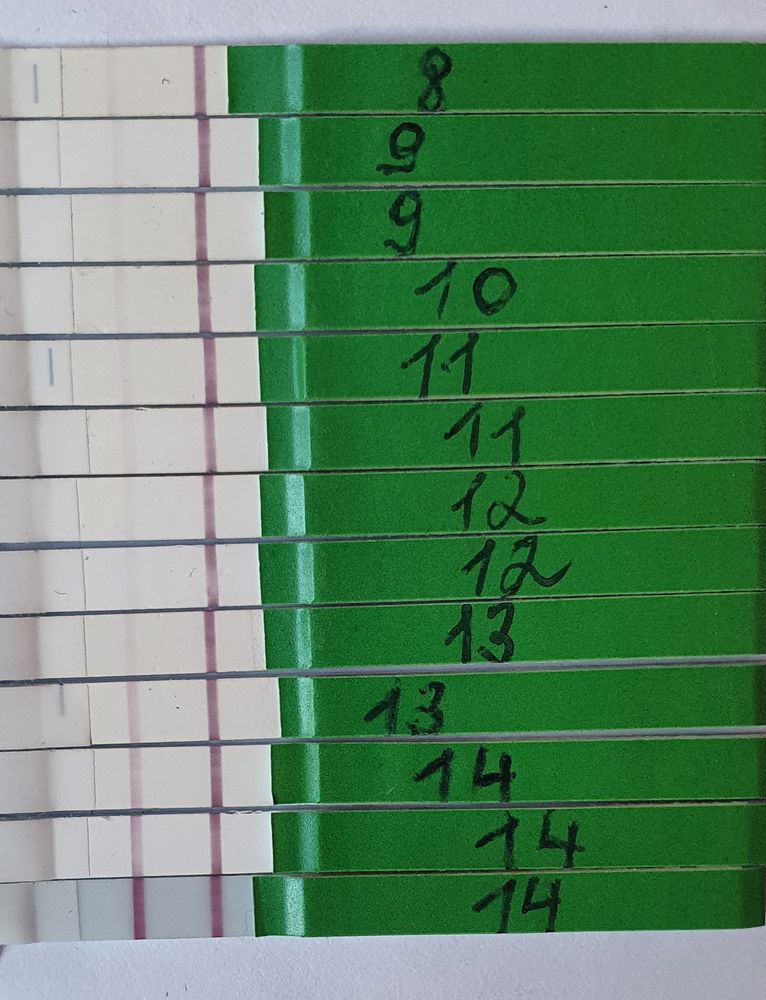 8
9
9
10
11
11
12
12
13
13
14
14
14